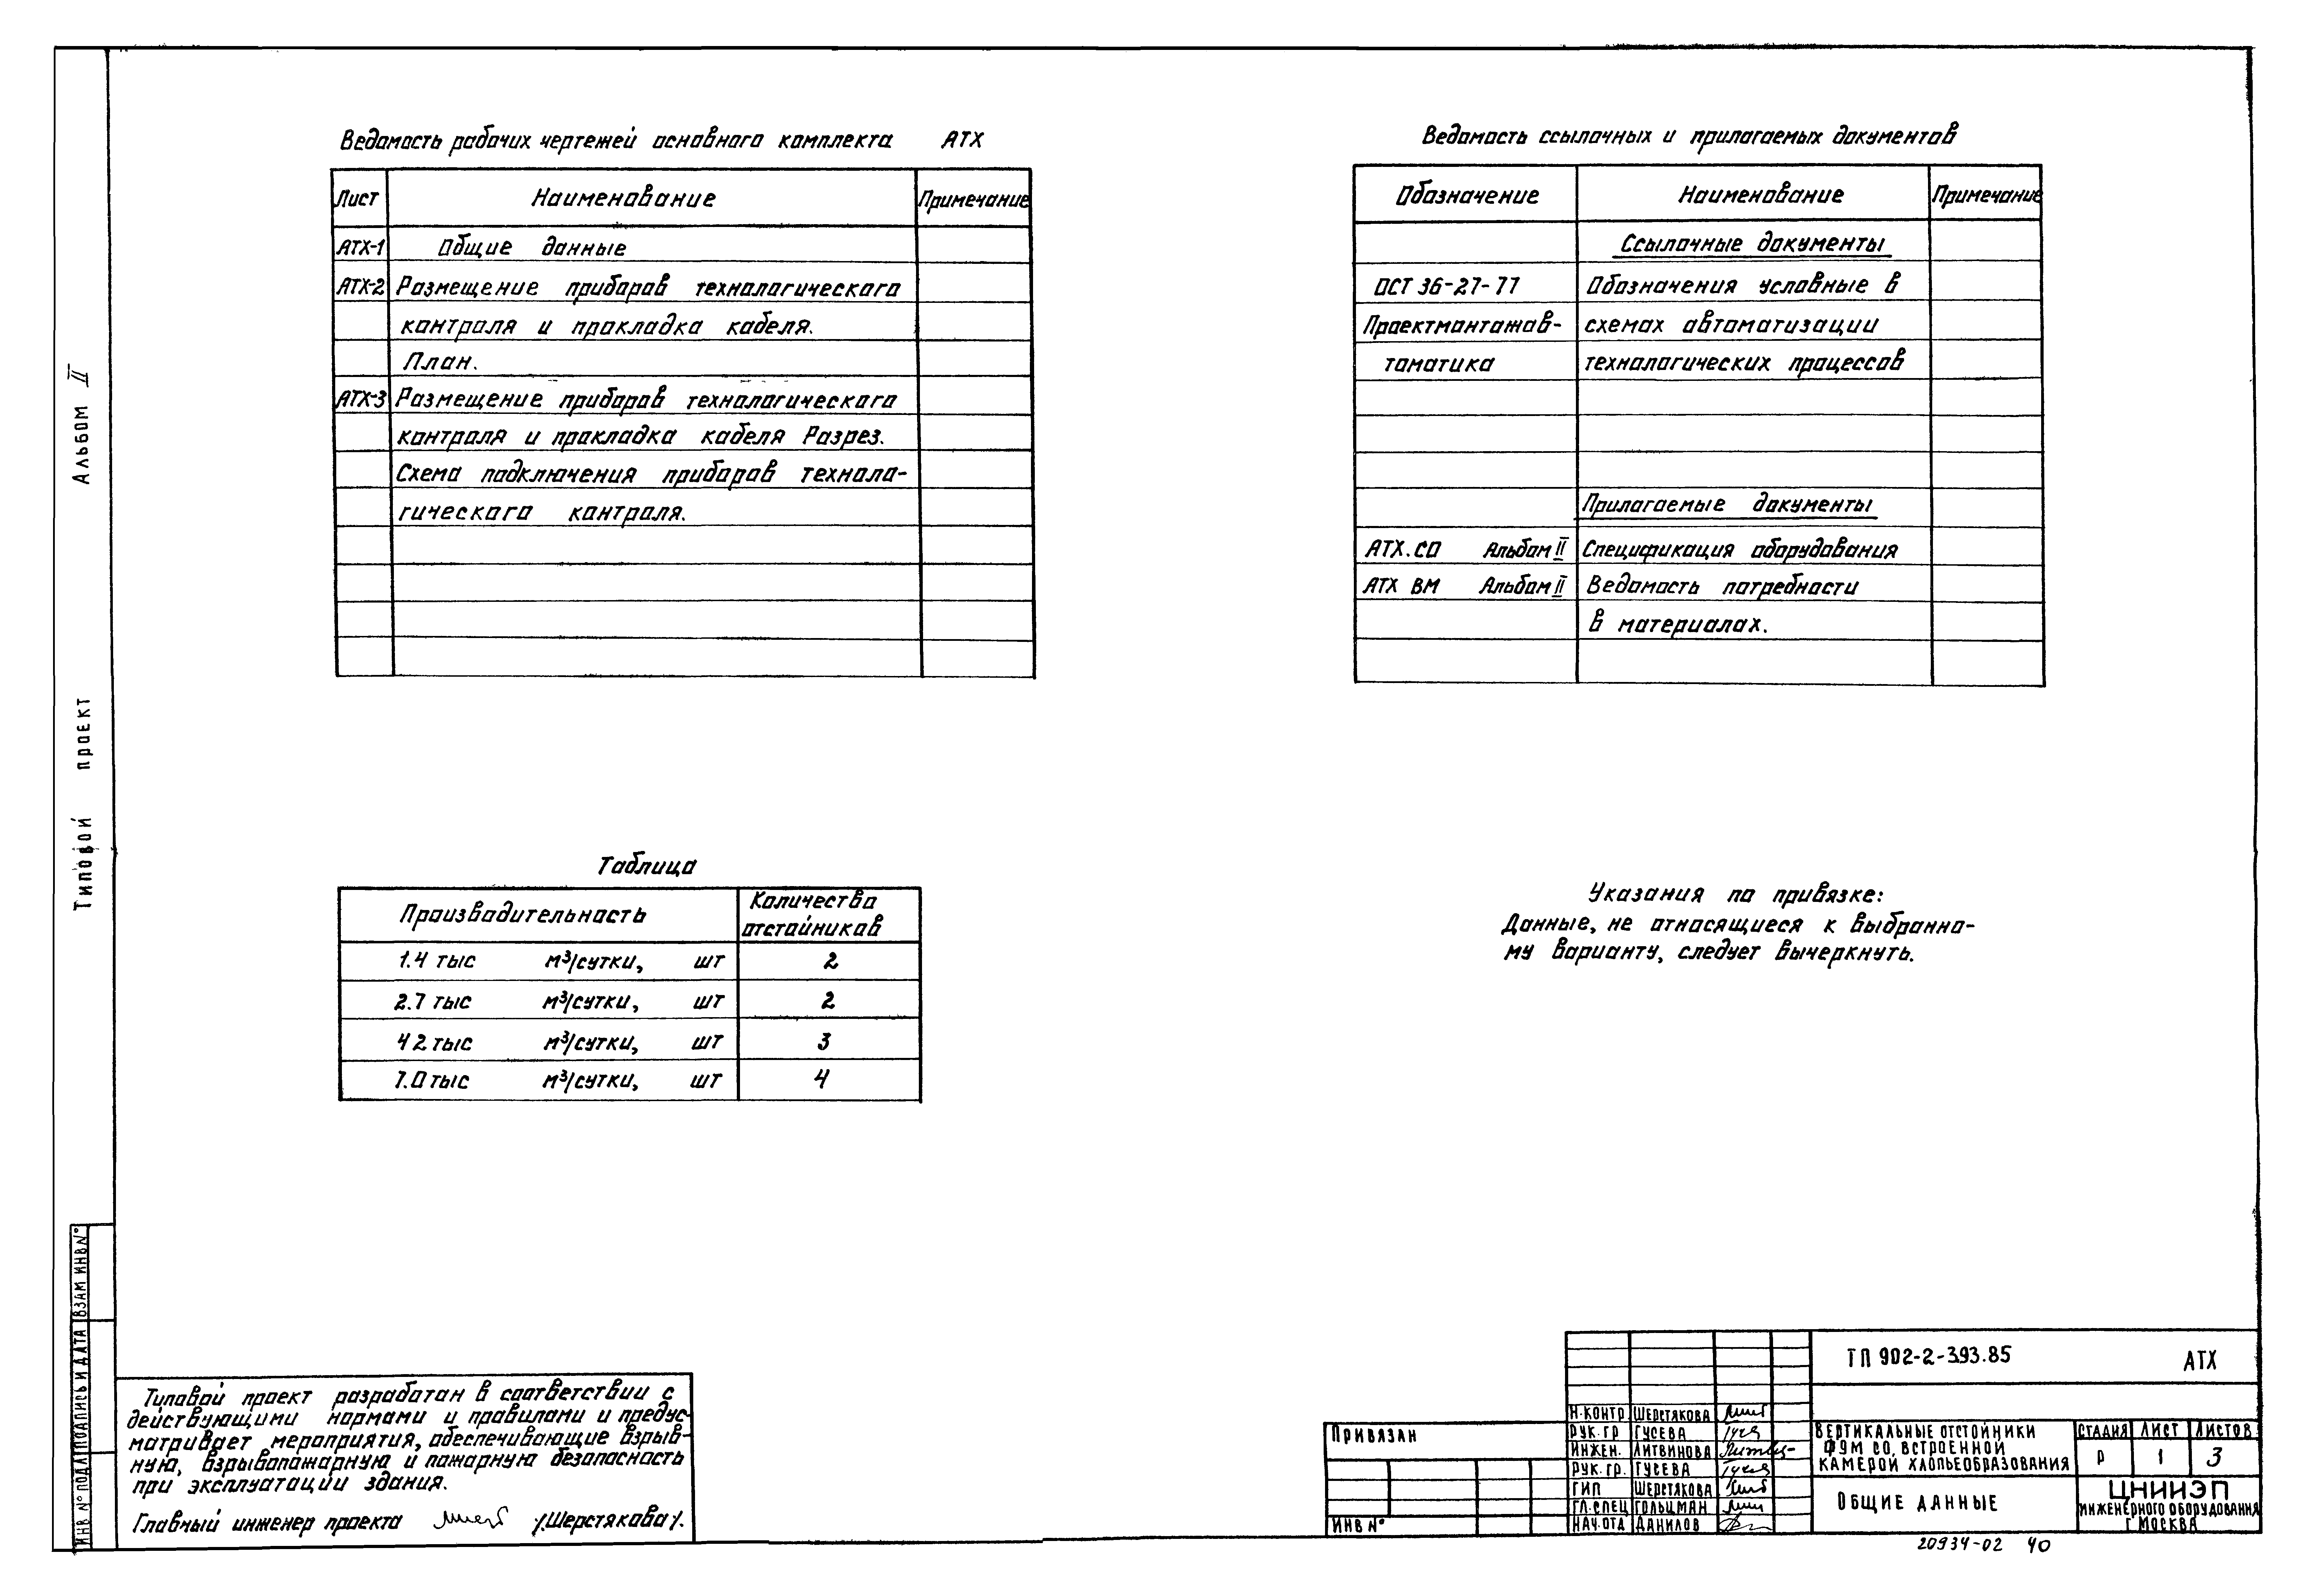 Ведомость рабочих чертежей основного комплекта АТХ
Лист Наименование Примечание
АТХ-1 Общие данные
АТХ-2 Размещение приборов технологического
контроля и прокладка кабеля.
План.
АТХ-3 Размещение приборов технологического
контроля и прокладка кабеля Разрез.
Схема подключения приборов техноло-
гического контроля.
Ведомость ссылочных и прилагаемых документов
Обозначение Наименование Примечание
Ссылочные документы
ОСТ 36-27-77 Обозначения условные в
Проектмонтажав- схемах автоматизации
томатика технологических процессов
Прилагаемые документы
АТХ.СО Альбом II Спецификация оборудования
АТХ ВМ Альбом II Ведомость потребности
в материалах.
Альбом II
Типовой проект
Таблица
Производительность Количество
отстойников
1.4 тыс м³/сутки, шт 2
2.7 тыс м³/сутки, шт 2
4 2 тыс м³/сутки, шт 3
7.0 тыс м³/сутки, шт 4
Указания по привязке:
Данные, не относящиеся к выбранно-
му варианту, следует вычеркнуть.
ИНВ N° ПОДЛ ПОДПИСЬ И ДАТА ВЗАМ ИНВ N°
Типовой проект разработан в соответствии с
действующими нормами и правилами и предус-
матривает мероприятия, обеспечивающие взрыв-
ную, взрывопожарную и пожарную безопасность
при эксплуатации здания.
Главный инженер проекта /Шерстякова/.
Привязан
ИНВ N°
Н.КОНТР ШЕРСТЯКОВА
РУК.ГР ГУСЕВА
ИНЖЕН. ЛИТВИНОВА
РУК.ГР. ГУСЕВА
ГИП ШЕРСТЯКОВА
ГЛ.СПЕЦ ГОЛЬЦМАН
НАЧ.ОТД ДАНИЛОВ
ТП 902-2-393.85 АТХ
ВЕРТИКАЛЬНЫЕ ОТСТОЙНИКИ
Ф9М СО, ВСТРОЕННОЙ
КАМЕРОЙ ХЛОПЬЕОБРАЗОВАНИЯ
СТАДИЯ ЛИСТ ЛИСТОВ
Р 1 3
ОБЩИЕ ДАННЫЕ
ЦНИИЭП
ИНЖЕНЕРНОГО ОБОРУДОВАНИЯ
Г МОСКВА
20934-02 40